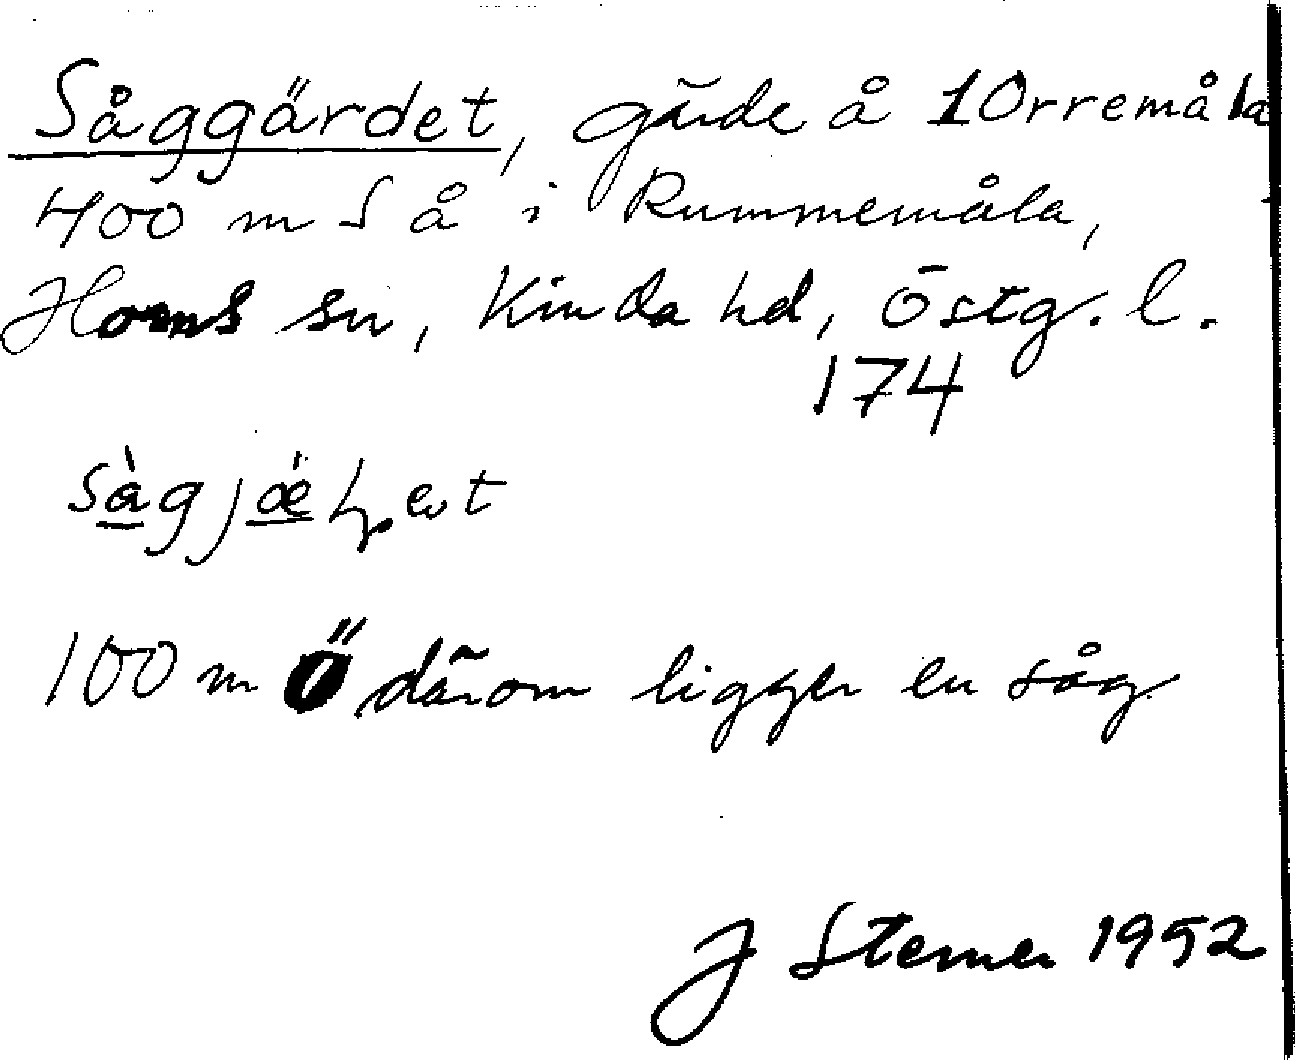 Såggärdet, gärde å 1 Orremåla
400 m S å i Rummemåla,
Horns sn, Kinda hd, Östg. l.
174
100 m Ö därom ligger en såg
J Sterner 1952